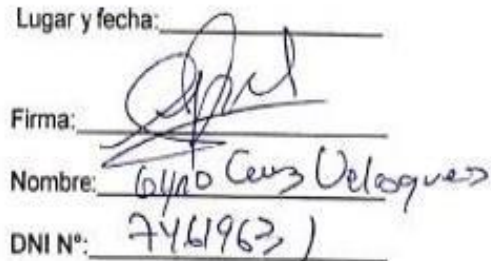 Lugar y fecha:
Firma:
Nombre: Gyno Cruz Velasquez
DNI Nº: 74619631